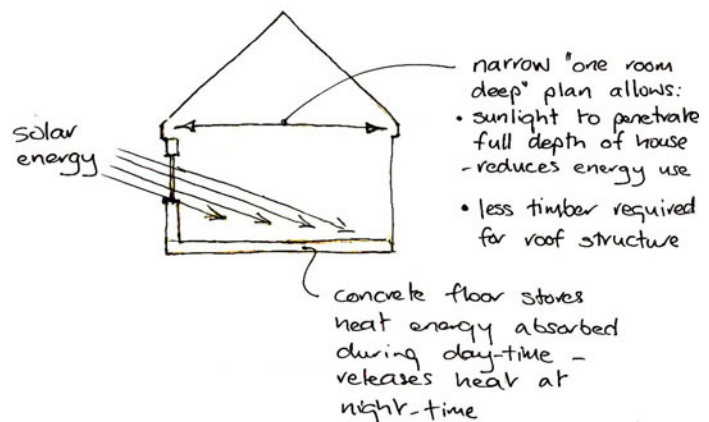 narrow "one room
deep" plan allows:
• sunlight to penetrate
full depth of house
- reduces energy use
• less timber required
for roof structure
solar
energy
concrete floor stores
heat energy absorbed
during day-time -
releases heat at
night-time